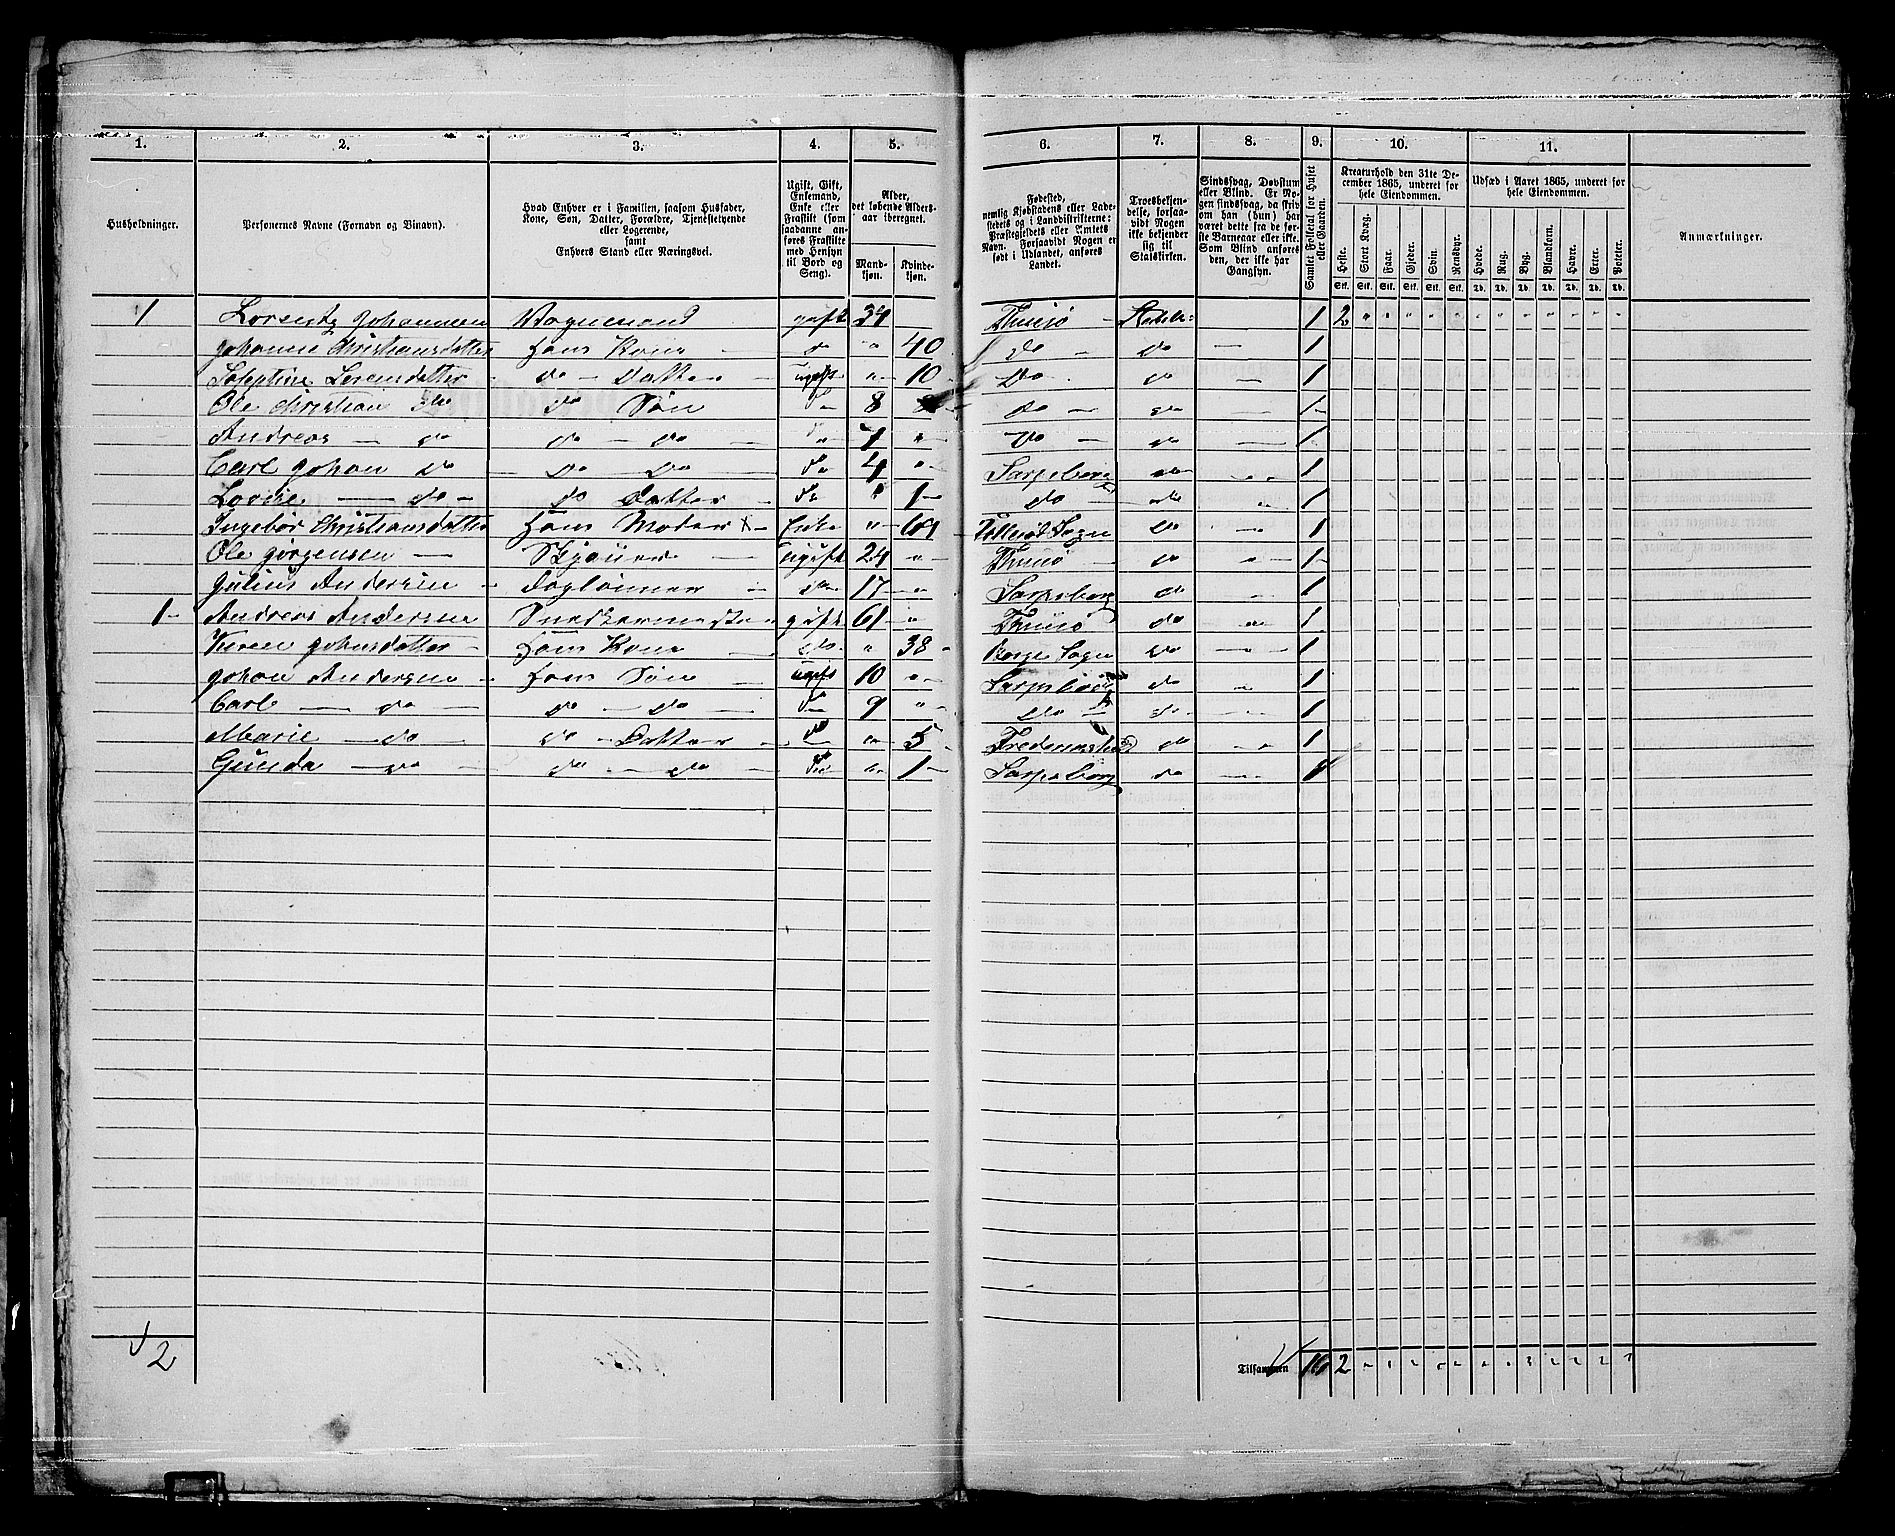 1. 2. 3. 4. 5. 6. 7. 8. 9. 10. 11.
Husholdninger.
Personernes Navne (Fornavn og Binavn).
Hvad Enhver er i Familien, saasom Husfader,
Kone, Søn, Datter, Forældre, Tjenestetyende
eller Logerende,
samt
Enhvers Stand eller Næringsvei.
Ugift, Gift,
Enkemand,
Enke eller
Fraskilt (som
saadanne an-
føres Fraskilte
med Hensyn
til Bord og
Seng).
Alder,
det løbende Alders-
aar iberegnet.
Mand-
kjøn.
Kvinde-
kjøn.
Fødested,
nemlig Kjøbstadens eller Lade-
stedets og i Landdistrikterne:
Præstegjeldets eller Amtets
Navn. Forsaavidt Nogen er
født i Udlandet, anføres
Landet.
Troesbekjen-
delse, forsaa-
vidt Nogen
ikke bekjender
sig til
Statskirken.
Sindssvag, Døvstum
eller Blind. Er No-
gen sindssvag, da skriv
om han (hun) har
været dette fra de før-
ste Barneaar eller ikke.
Som Blind anføres
den, der ikke har
Gangsyn.
Samlet Folketal for Huset
eller Gaarden.
Kreaturhold den 31te De-
cember 1865, underet for
hele Eiendommen.
Heste. Stort Kvæg. Faar. Gjeder. Svin. Rensdyr.
Stk. Stk. Stk. Stk. Stk. Stk.
Udsæd i Aaret 1865, underet for
hele Eiendommen.
Hvede. Rug. Byg. Blandkorn. Havre. Erter. Poteter.
Td. Td. Td. Td. Td. Td. Td.
Anmærkninger.
1 Johannesen Vognmand gift 34 Thunø 1 2
Johanne Christiansdatter Hans Kone do " 40 do do 1
do Datter ugift " 10 Do do 1
Ole Christian do do Søn do 8 do do 1
Andreas do do do " 7 do do 1
Carl Johan do do do do 4 " Sarpsborg do 1
do do Datter do " 1 do do 1
Ingebor Christiansdatter Hans Moder Enke " 69 Sogn do 1
Ole Jørgensen ugift 24 " Thunø do 1
Julius Andersen Dagleiner do 17 " Sarpsborg do 1
1 Andreas Andersen Snedkermester gift 61 " Thunø do 1
Karen Johnsdatter Hans Kone do " 38 Borge Sogn do 1
Johan Andersen Hans Søn ugift 10 " Sarpsborg do 1
Carl do do do do 9 " do do 1
Marie do do Datter do " 5 Frederikstad do 1
Gunda do do do do " 1 Sarpsborg do 1
2
Tilsammen 16 2